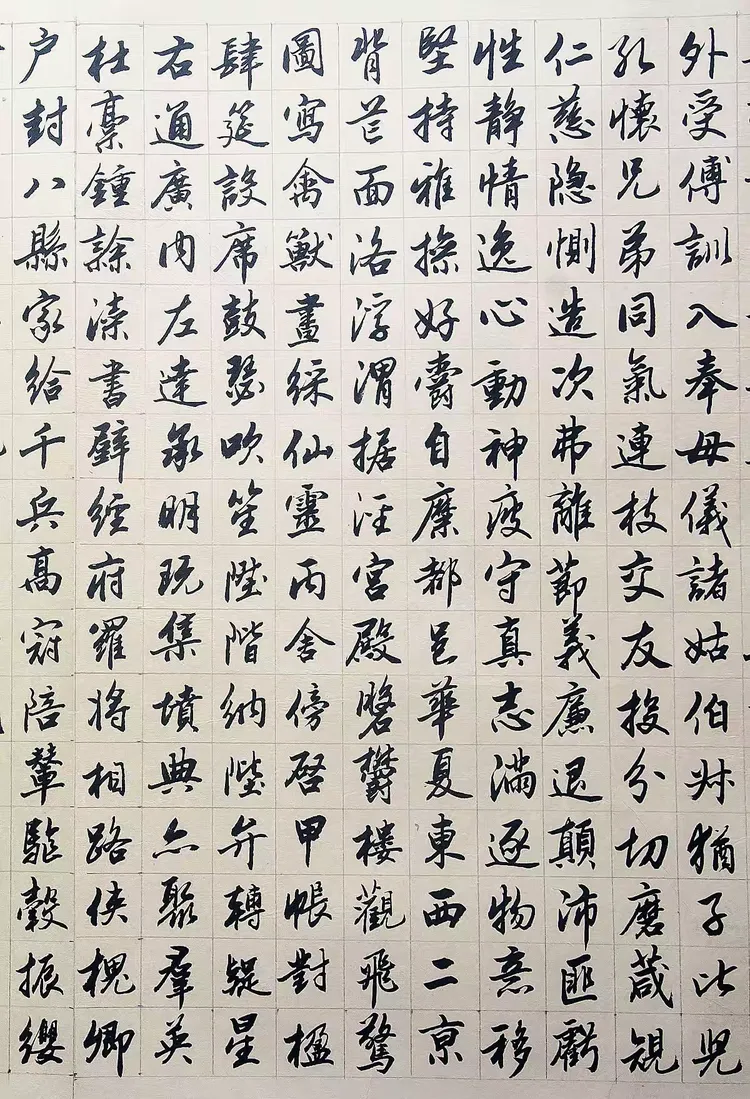 外受傅訓入奉母儀諸姑伯叔猶子比兒
孔懷兄弟同氣連枝交友投分切磨箴規
仁慈隐惻造次弗離節義廉退顛沛匪虧
性静情逸心動神疲守真志滿逐物意移
堅持雅操好爵自縻都邑華夏東西二京
背芒面洛浮渭据涇宮殿盤鬱樓觀飛驚
圖寫禽獸畫綵仙靈丙舍傍啓甲帳對楹
肆筵設席鼓瑟吹笙陞階納陛弁轉疑星
右通廣內左達承明既集墳典亦聚羣英
杜稾鍾隸漆書壁經府羅將相路俠槐卿
户封八縣家給千兵高冠陪輦驅轂振纓